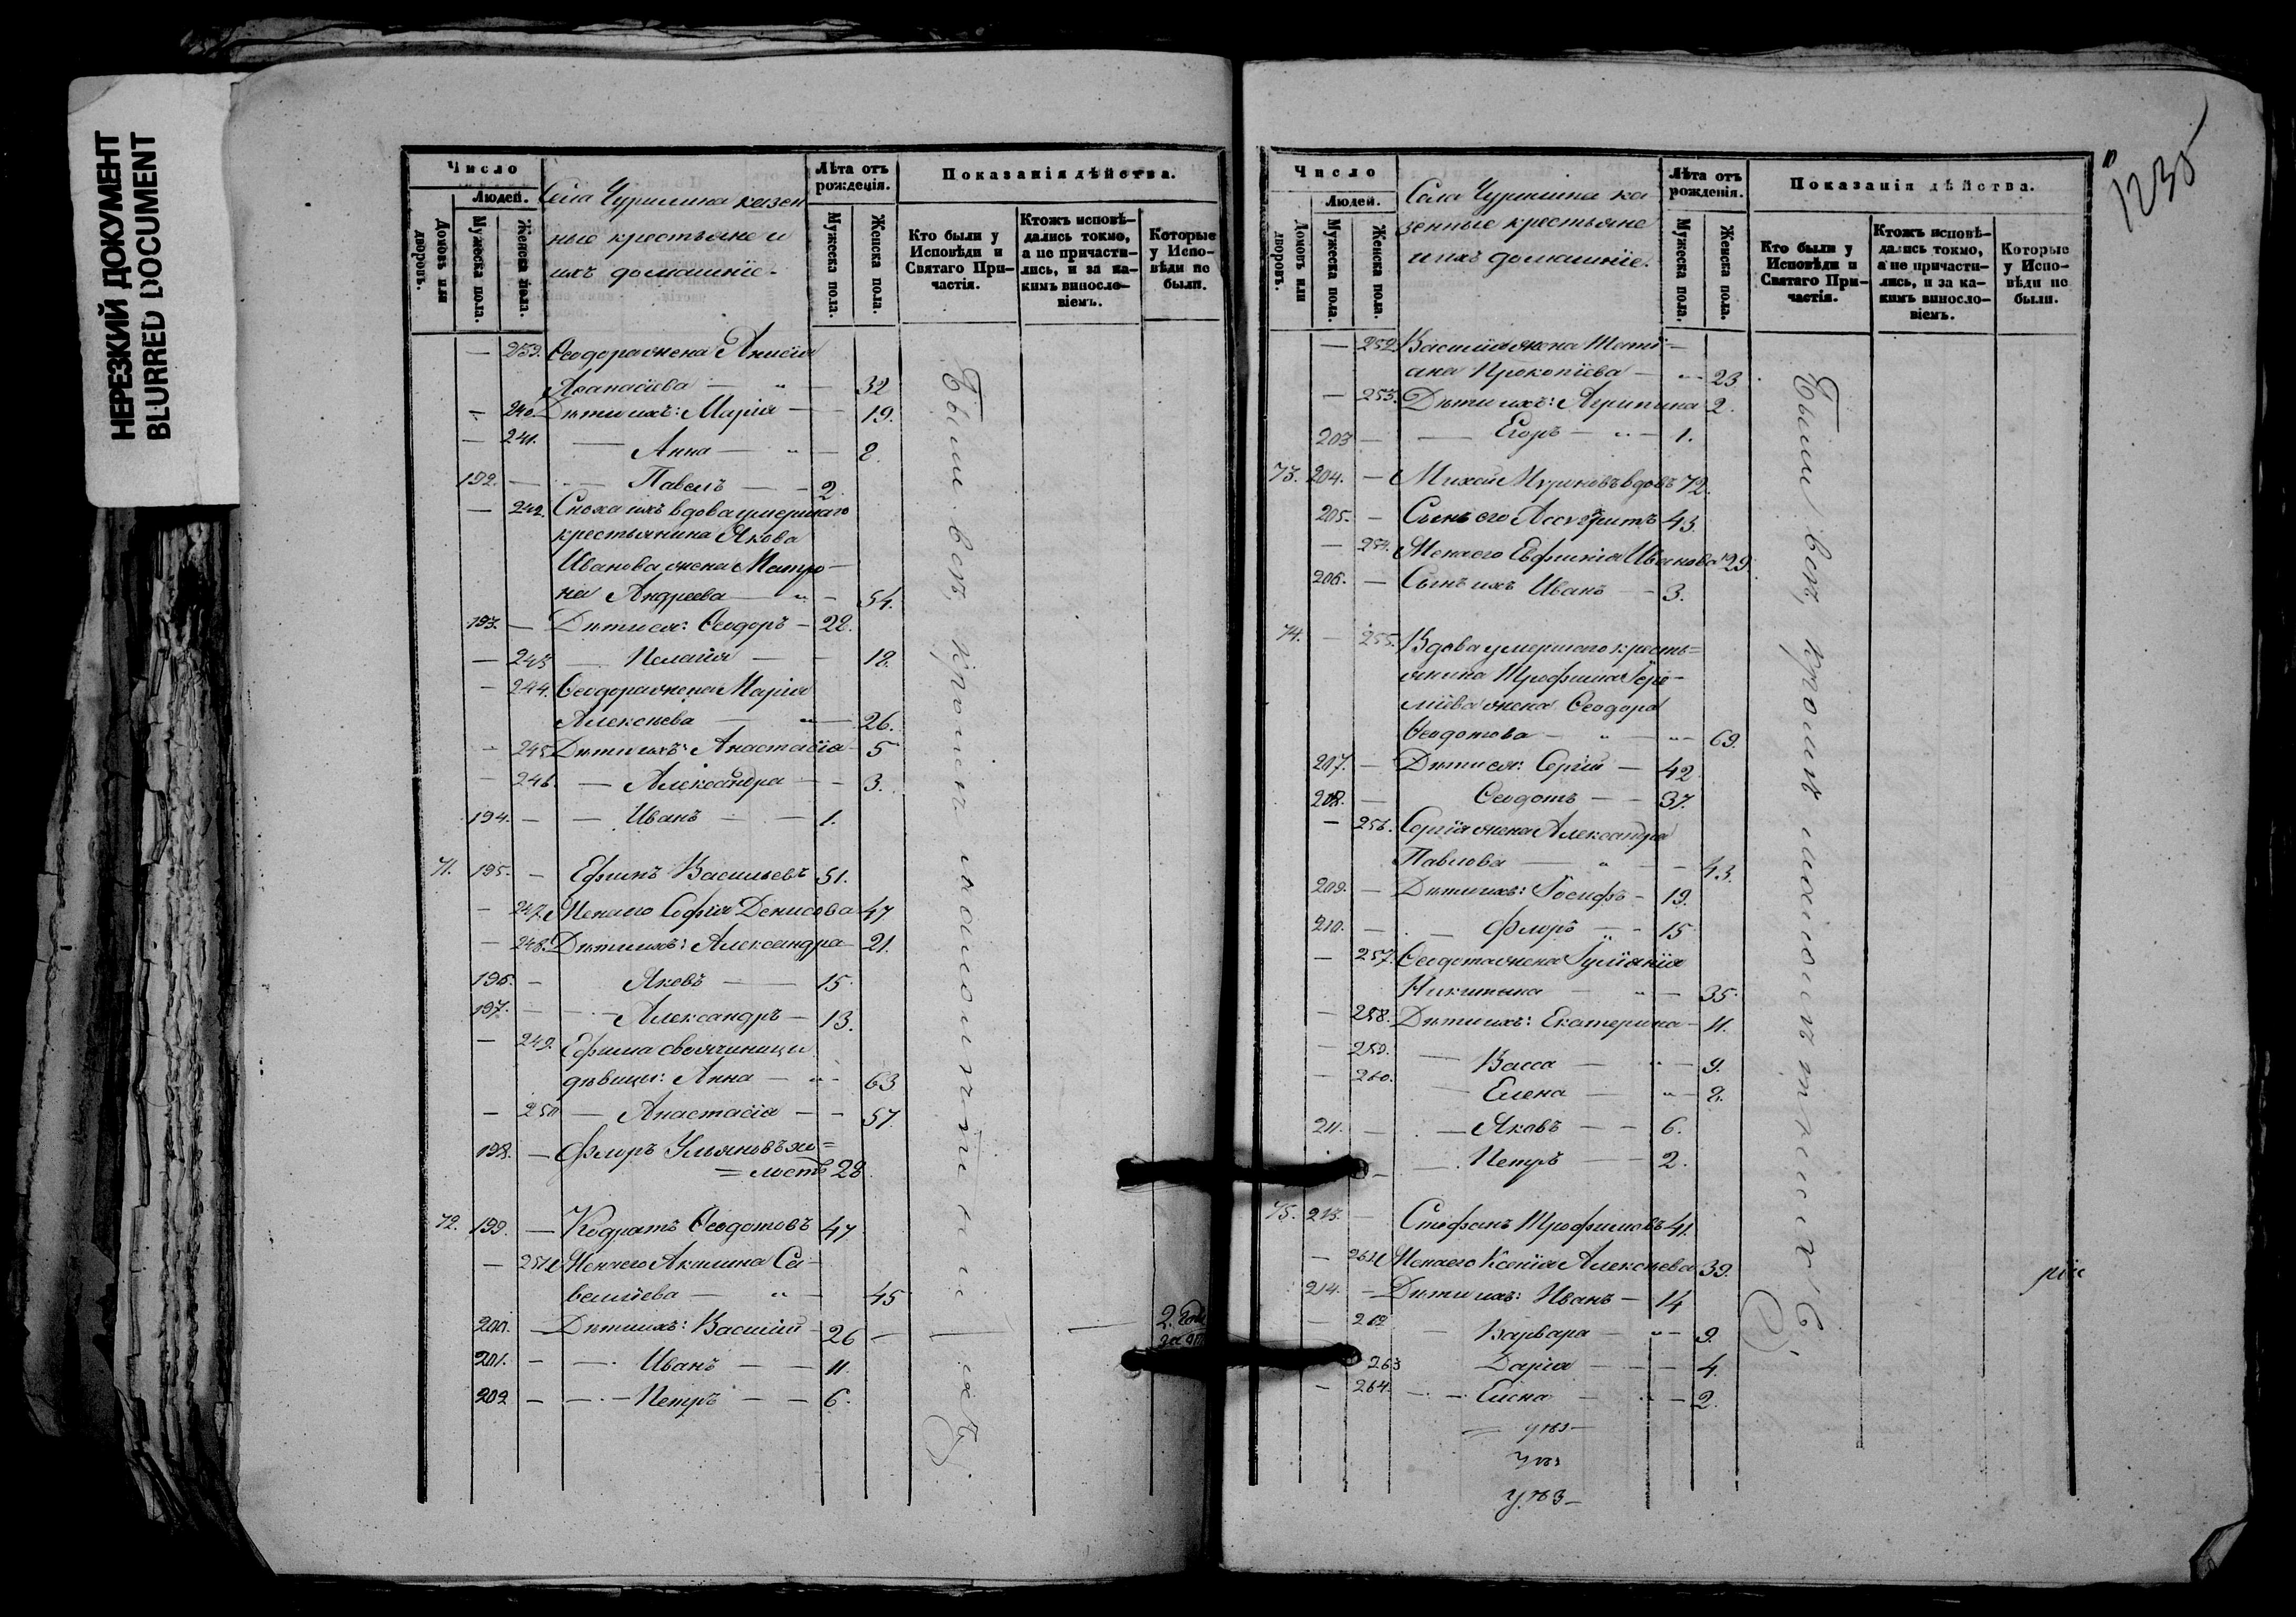 НЕРЕЗКИЙ ДОКУМЕНТ
BLURRED DOCUMENT
Число
Людей.
Домовъ или дворовъ.
Мужеска пола.
Женска пола.
Села Чурилина казен
ные крестьяне и
ихъ домашніе.
Лѣта отъ рожденія.
Мужеска пола.
Женска пола.
Показанія дѣйства.
Кто были у Исповѣди и Святаго Причастія.
Ктожъ исповѣдались токмо, а не причастились, и за какимъ винословіемъ.
Которые у Исповѣди не были.
— 239. Ѳеодора жена Анисія
Аѳанасіева — 32
— 240. Дѣти ихъ: Марія — 19.
— 241. — Анна — 8.
192. — Павелъ — 2.
— 242. Сноха ихъ вдова умершаго
крестьянина Якова
Иванова жена Матро-
на Андреева — 54.
193. — Дѣти ея: Ѳеодоръ — 28.
— 243 — Пелагія — 18.
— 244. Ѳеодора жена Марія
Алексѣева — 26.
— 245 Дѣти ихъ: Анастасія — 5
— 246. — Александра — 3.
194. — Иванъ — 1.
71. 195. — Ефимъ Васильевъ 51.
— 247. Жена его Софія Денисова 47
— 248. Дѣти ихъ: Александра 21.
196. — Яковъ — 15.
197. — Александръ — 13.
— 249. Ефима свояченицы
дѣвицы: Анна — 63
— 250 — Анастасія — 57.
198. — Флоръ Ульяновъ хо=
=лостъ 28.
72. 199. — Кодратъ Ѳеодотовъ 47
— 251. Жена его Акилина Са-
велиева — 45
200. — Дѣти ихъ: Василій — 26 —
201. — Иванъ — 11.
202 — Петръ — 6.
Были всѣ, кромѣ малолѣтнихъ
Число
Людей.
Домовъ или дворовъ.
Мужеска пола.
Женска пола.
Села Чурилина ка
зенные крестьяне
и ихъ домашніе.
Лѣта отъ рожденія.
Мужеска пола.
Женска пола.
Показанія дѣйства.
Кто были у Исповѣди и Святаго Причастія.
Ктожъ исповѣдались токмо, а не причастились, и за какимъ винословіемъ.
Которые у Исповѣди не были.
1235
— 252. Василія жена Тати-
ана Прокопіева — 23.
— 253. Дѣти ихъ: Агрипина 2.
203 — Егоръ — 1.
73. 204. — вдовъ 72.
205. — Сынъ его 43.
— 254. Жена его Евфимія Иванова 29.
206. — Сынъ ихъ Иванъ — 3.
74. — 255. Вдова умершаго кресть=
янина Трофима
жена Ѳеодора
Ѳеодотова — 69.
207. — Дѣти ея: Сергій — 42
208. — Ѳеодотъ — 37.
— 256. Сергія жена Александра
Павлова — 43.
209. — Дѣти ихъ: Іосифъ — 19.
210. — Флоръ — 15
— 257. Ѳеодота жена Іуліанія
Никитина — 35.
— 258. Дѣти ихъ: Екатерина — 11.
— 259. — Васса — 9.
— 260. — Елена — 8.
211. — Яковъ — 6.
— Петръ — 2.
75. 213. — Стефанъ Трофимовъ 41.
— 261. Жена его Ксенія Алексѣева 39.
214. — Дѣти ихъ: Иванъ — 14
— 262 — Варвара — 9.
263 Дарія — 4.
— 264. — Елена — 2.
Были всѣ, кромѣ малолѣтнихъ